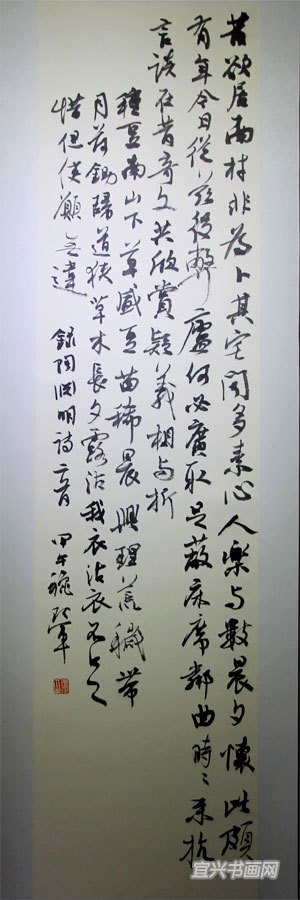 昔欲居南村非為卜其宅聞多素心人樂与數晨夕懷此頗
有年今日從茲役弊廬何必廣取足蔽床席鄰曲時〻來抗
言談在昔奇文共欣賞疑義相与析
種豆南山下草盛豆苗稀晨興理荒穢帶
月荷鋤歸道狹草木長夕露沾我衣沾衣不足
惜但使願無違 錄陶渊明詩二首 甲午穐 軍
宜兴书画网